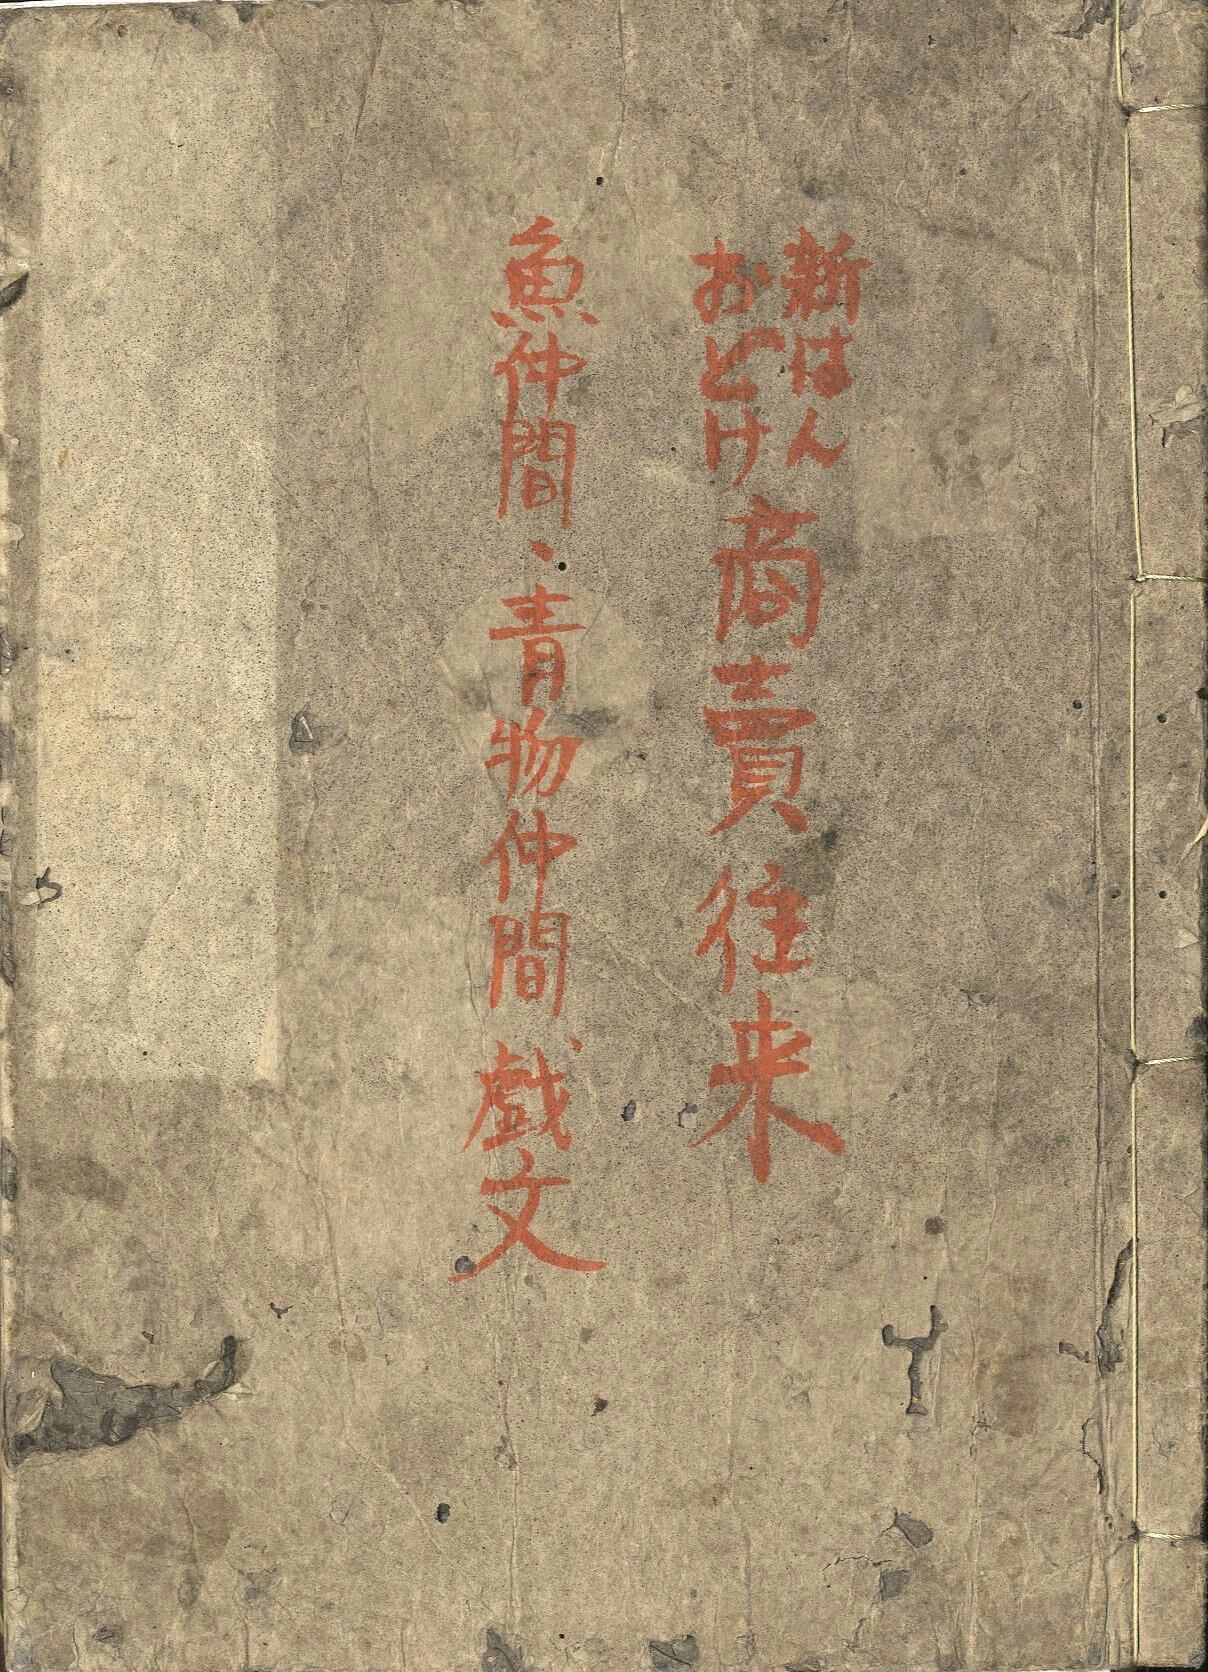 新はん
おどけ
商賣往来
魚仲間・青物仲間戯文